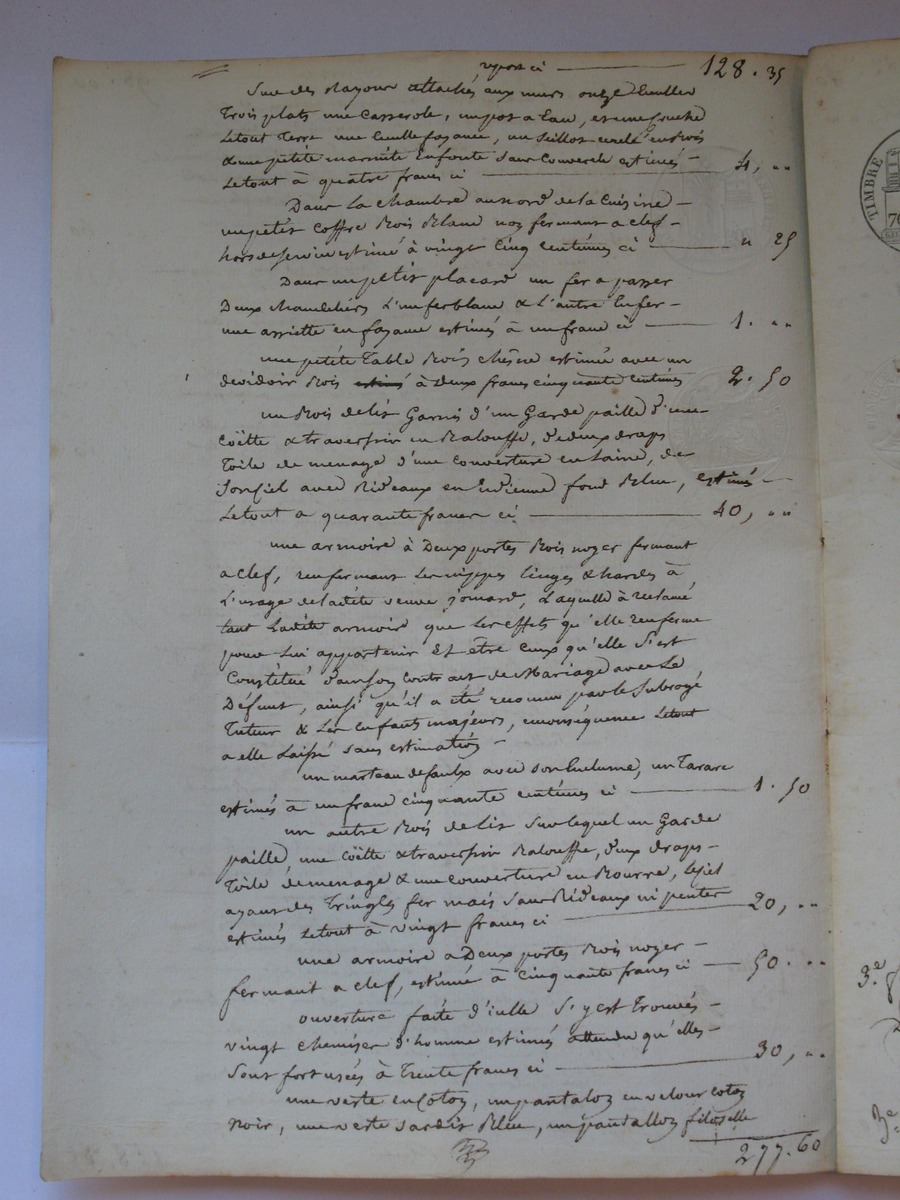 report ci ——— 128. 35
Sur des rayons attachés aux murs onze Cuillers
Trois plats une Casserole, un pot a Eau, et une Couche
Letout Terre une Cuille fayance, un Seillot cerclé en Bois
& une petite marmite En fonte Sans Couvercle estimés -
Le tout à quatre francs ci ——— 4, "
Dans la Chambre au nord de la Cuisine -
un petit Coffre Bois Blanc non fermant a clef -
hors de Service estimé à vingt Cinq Centimes ci ——— " 25
Dans un petit placard un fer a passer
Deux chandeliers L'un fer blanc & L'autre En fer -
une assiette en fayance estimés à un franc ci ——— 1. "
une petite Table Bois chêne estimée avec un
devidoir Bois estimé à Deux francs cinquante Centimes 2. 50
un Bois de lit Garni d'un Garde paille d'une
Coëtte & traversin en Balouffe, de deux draps
Toile de menage d'une couverture en Laine, de
Son Ciel avec Rideaux en Indienne fond Bleu, estimés —
Le tout a quarante francs ci ——— 40, "
une armoire à Deux portes Bois noyer fermant
a Clef, renfermant Les nippes linges & hardes à
L'usage de ladite veuve Jomard, Laquelle à reclamé
tant Ladite armoire que Les effets qu'elle renferme
pour Lui appartenir Et être Ceux qu'elle S'est
Constitué dans son Contrat de Mariage avec Le
Défunt, ainsi qu'il a été reconnu par le Subrogé
Tuteur & Les Enfants majeurs, en conséquence Le tout
a elle Laissé sans estimation -
un marteau de faulx avec son Enclume, un Tarare
estimés à un franc cinquante centimes ci ——— 1. 50
un autre Bois de lit Sur lequel un Garde
paille, une Coëtte & traversin Balouffe, deux draps -
Toile de menage & une couverture en Bourre, Le lit
ayant des Tringles fer mais Sans Rideaux ni pentes
estimés Le tout à vingt francs ci ——— 20, "
une armoire a Deux portes Bois noyer -
fermant a clef, estimée à Cinquante francs ci — 50. "
ouverture faite d'icelle S'y est Trouvés -
vingt chemises d'homme estimés attendu qu'elles -
Sont fort usées à Trente francs ci ——— 30, "
une veste en Coton, un pantalon en velour Coton
noir, une veste Sardis Bleu, un pantallon filoselle
277. 60
TIMBRE
70
3.e
3e